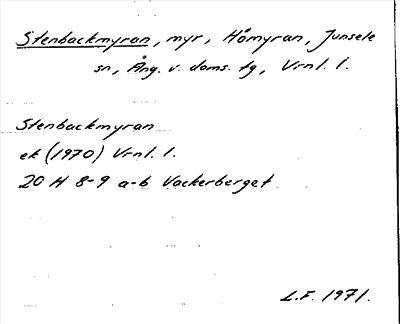 Stenbackmyran, myr, Hömyran, Junsele
sn, Ång. v. doms. tg, Vrnl. l.
Stenbackmyran
ek (1970) Vrnl. l.
20 H 8-9 a-b Vackerberget.
L.F. 1971.